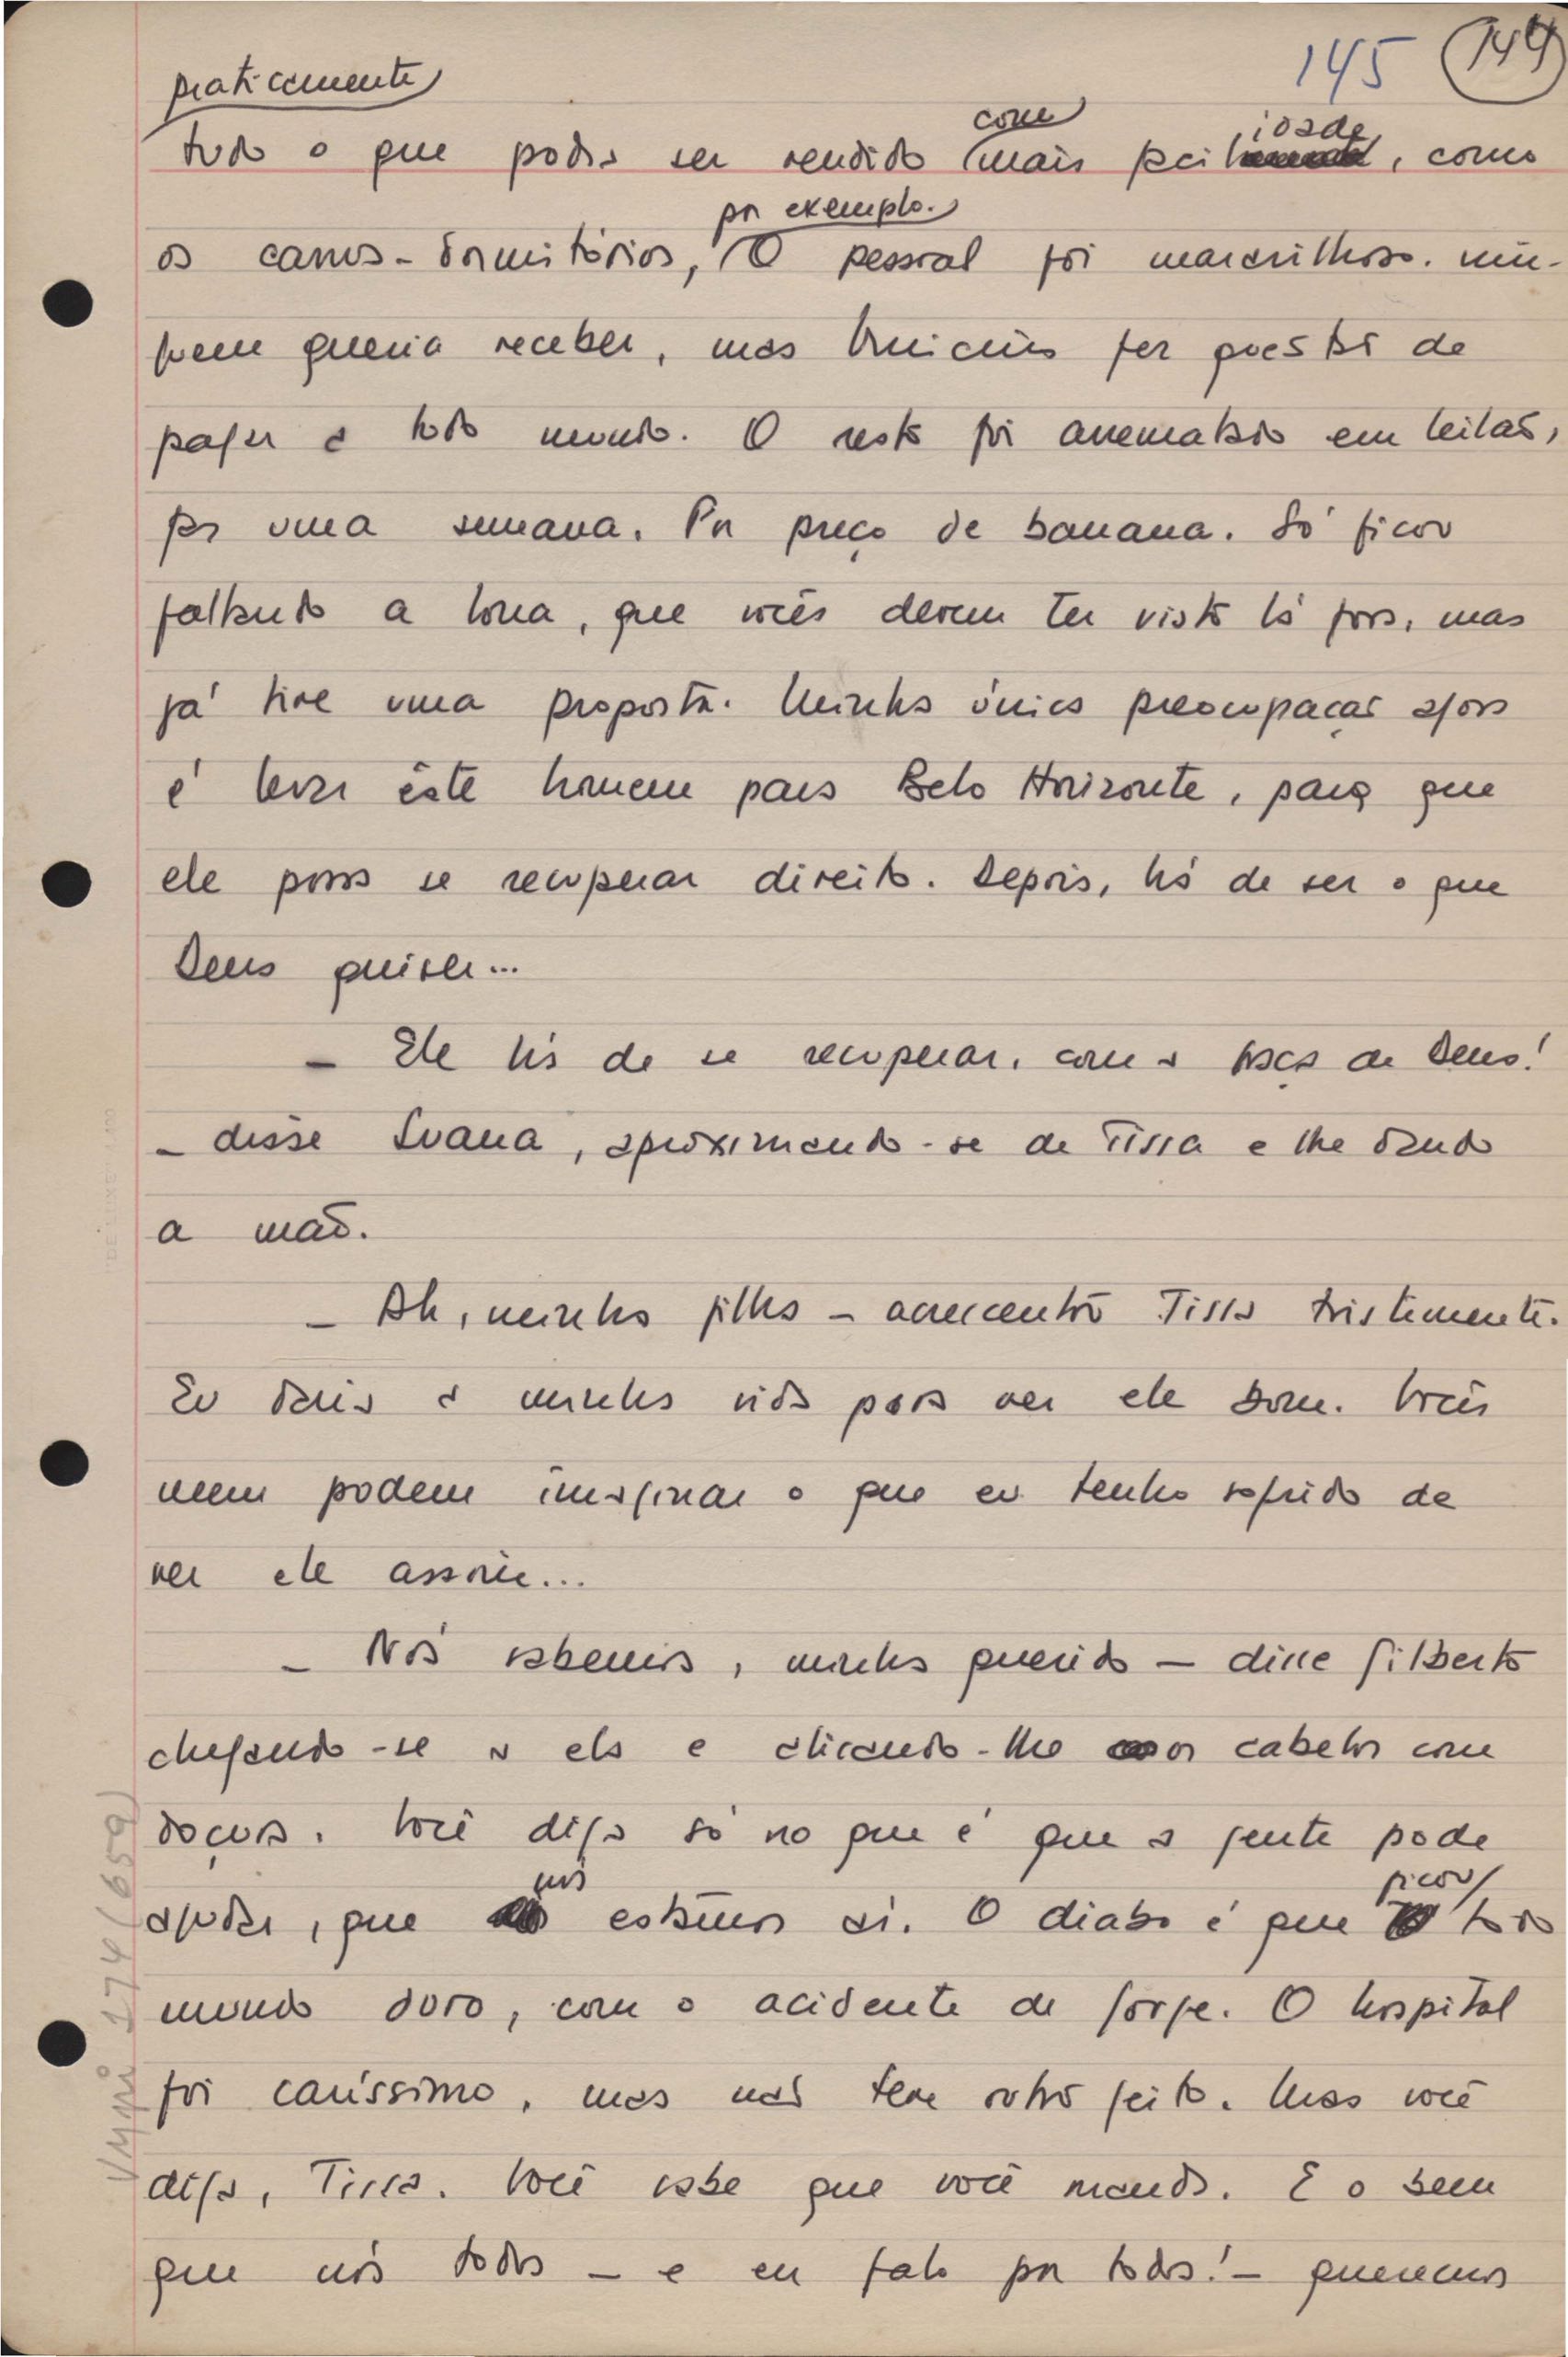 145 144
praticamente
tudo o que podia ser vendido com mais facilidade, como
os carros-dormitórios, por exemplo. O pessoal foi maravilhoso. nin-
guem queria receber, mas Vinicius fez questão de
pagar a todo mundo. O resto foi arrematado em leilão,
faz uma semana. Por preço de banana. Só ficou
faltando a lona, que vocês devem ter visto lá fora, mas
já tive uma proposta. Minha única preocupação agora
é levar êste homem para Belo Horizonte, para que
ele possa se recuperar direito. Depois, há de ser o que
Deus quiser...
— Ele há de se recuperar, com a graça de Deus!
— disse Luana, aproximando-se de Tissa e lhe dando
a mão.
— Ah, minha filha — acrescentou Tissa tristemente.
Eu daria a minha vida para ver ele bom. Vocês
nem podem imaginar o que eu tenho sofrido de
ver ele assim...
— Nós sabemos, minha querida — disse Gilberto
chegando-se a ela e alisando-lhe os cabelos com
doçura. Você diga só no que é que a gente pode
ajudar, que nós estamos aí. O diabo é que ficou todo
mundo duro, com o acidente de Jorge. O hospital
foi caríssimo, mas não teve outro jeito. Mas você
diga, Tissa. Você sabe que você manda. E o bem
que nós todos — e eu falo por todos! — queremos